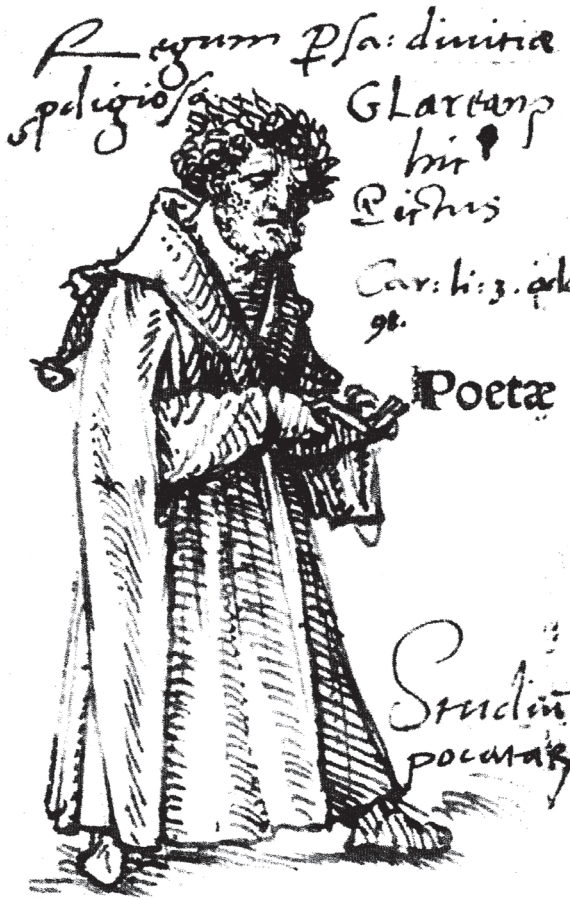 Regum Psa: divitiæ
pdigiosa
GLareanꝰ
hic
Pictus
Car: li: 3. od
9t.
Poetæ
Studiū
poetaꝝ